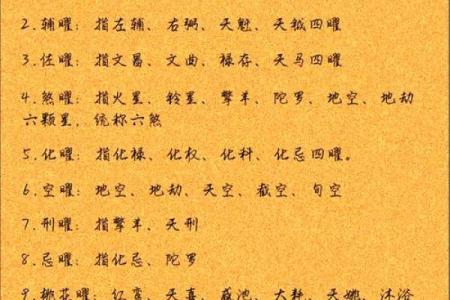 2.辅曜：指左辅、右弼、天魁、天钺四曜
3.佐曜：指文昌、文曲、禄存、天马四曜
4.煞曜：指火星、铃星、擎羊、陀罗、地空、地劫
六颗星，统称六煞
5.化曜：指化禄、化权、化科、化忌四曜。
6.空曜：地空、地劫、天空、截空、旬空
7.刑曜：指擎羊、天刑
8.忌曜：指化忌、陀罗
9.桃花曜：红鸾、天喜、咸池、大耗、天姚、沐浴